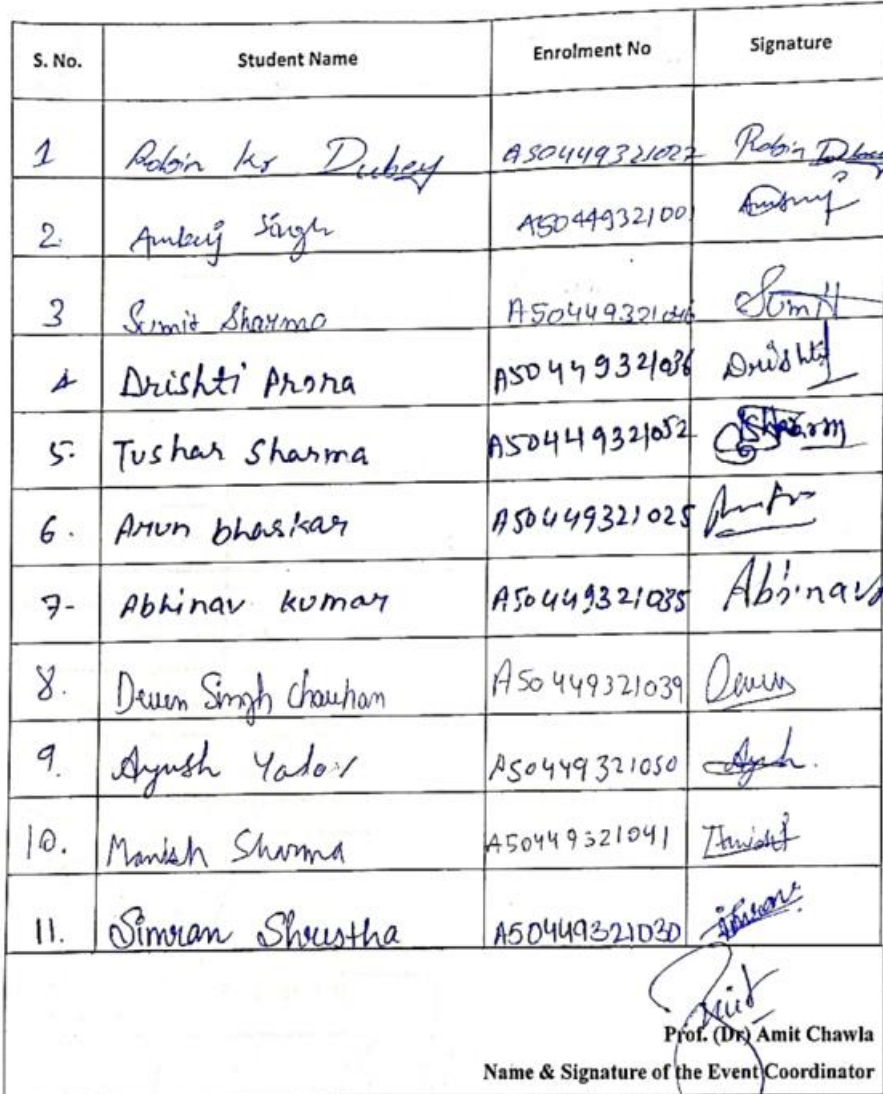 S. No. Student Name Enrolment No Signature
1 Robin Kr Dubey A50449321027 Robin Dubey
2. Ambuj Singh A50449321001
3 Sumit Sharma A50449321046 Sumit
4 Drishti Arora A50449321036 Drishti
5. Tushar Sharma A50449321052
6. Arun bhaskar A50449321025
7- Abhinav kumar A50449321035 Abhinav
8. Deven Singh Chauhan A50449321039 Deven
9. Ayush Yadav A50449321050 Ayush.
10. Manish Sharma A50449321041 Manish
11. Simran Shrestha A50449321030
Prof. (Dr) Amit Chawla
Name & Signature of the Event Coordinator